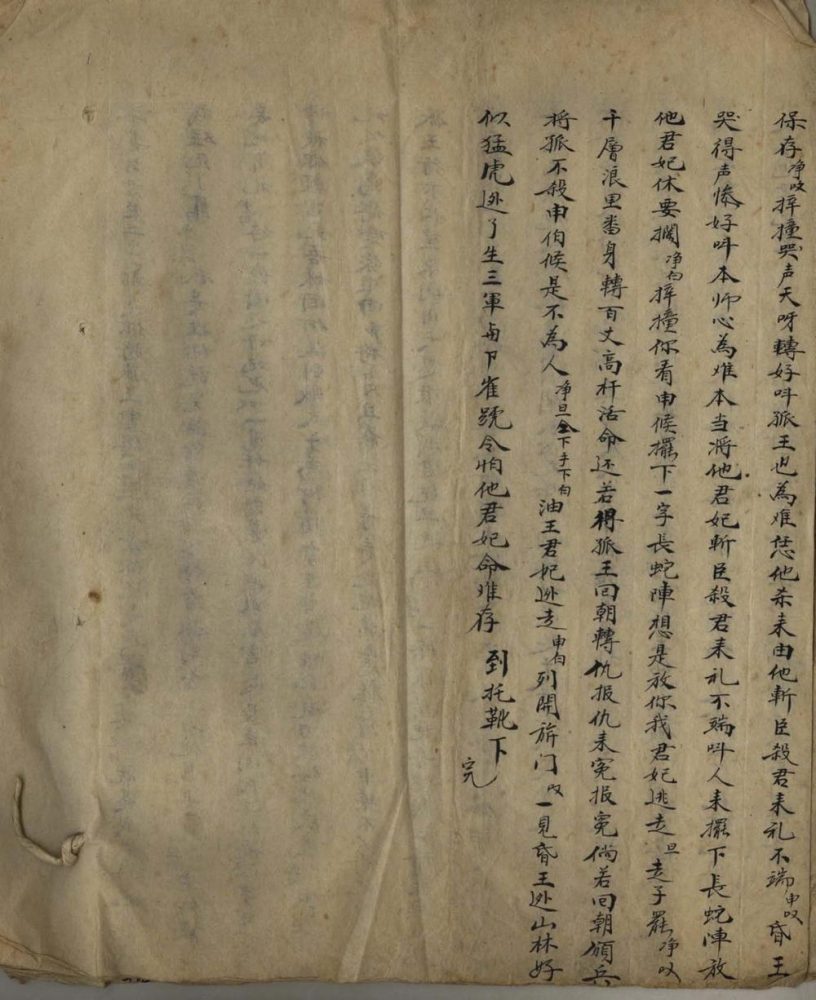 保存净叹梓撞哭声天呀轉好呌孤王也為难恁他杀耒由他斬臣殺君耒礼不端申叹昏王
哭得声惨好呌本师心為难本当將他君妃斬臣殺君耒礼不端呌人耒擺下長蛇陣放
他君妃休要攔净白梓撞你看申候擺下一字長蛇陣想是放你我君妃逃走旦走子罷净叹
千層浪里番身轉百丈高杆活命还若得孤王回朝轉仇报仇耒冤报冤倘若回朝頒兵
將孤不殺申伯候是不為人净旦仝下手下白油王君妃迯走申白列開旂门叹一見昏王迯山林好
似猛虎迯了生三軍与下雀號令怕他君妃命难存 到托靴下
完